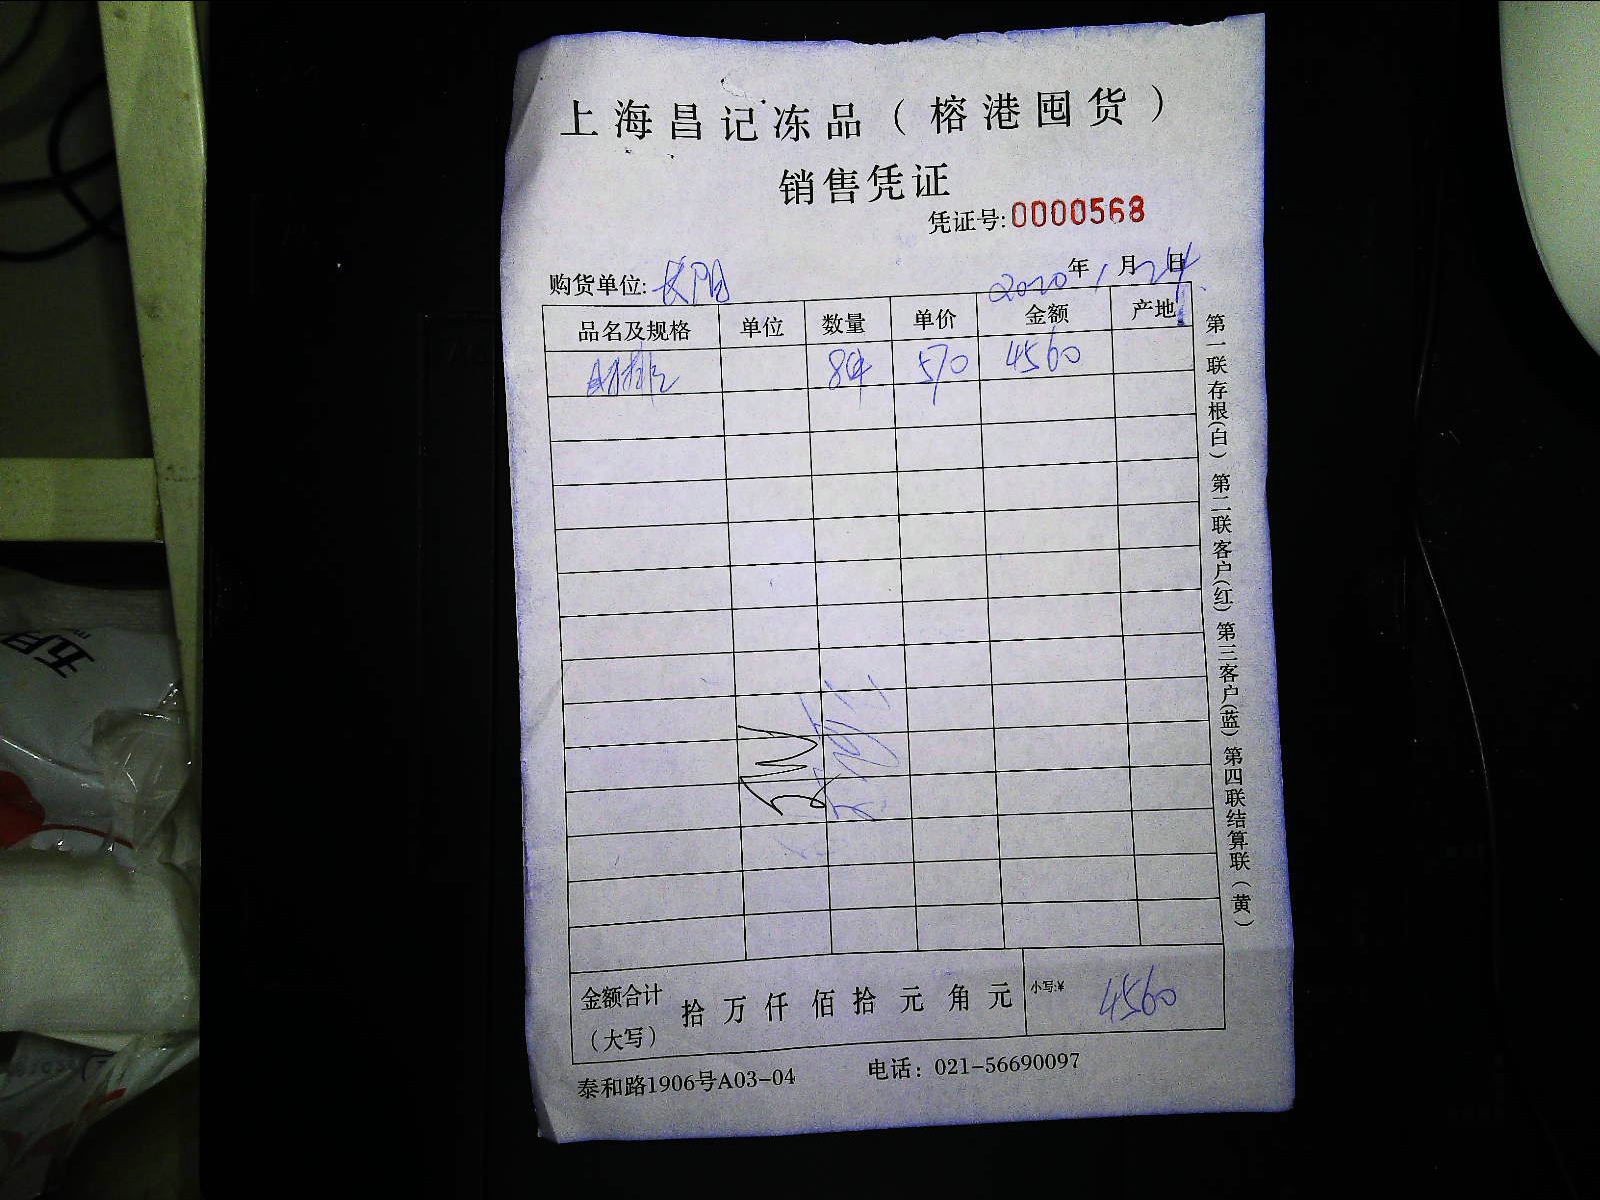 上海昌记冻品（榕港囤货）
销售凭证
凭证号:0000568
购货单位:长阳 2020年1月24日
品名及规格 单位 数量 单价 金额 产地
8件 570 4560
金额合计（大写） 拾 万 仟 佰 拾 元 角 元 小写:¥ 4560
泰和路1906号A03-04 电话：021-56690097
第一联存根(白) 第二联客户(红) 第三客户(蓝) 第四联结算联(黄)
五月